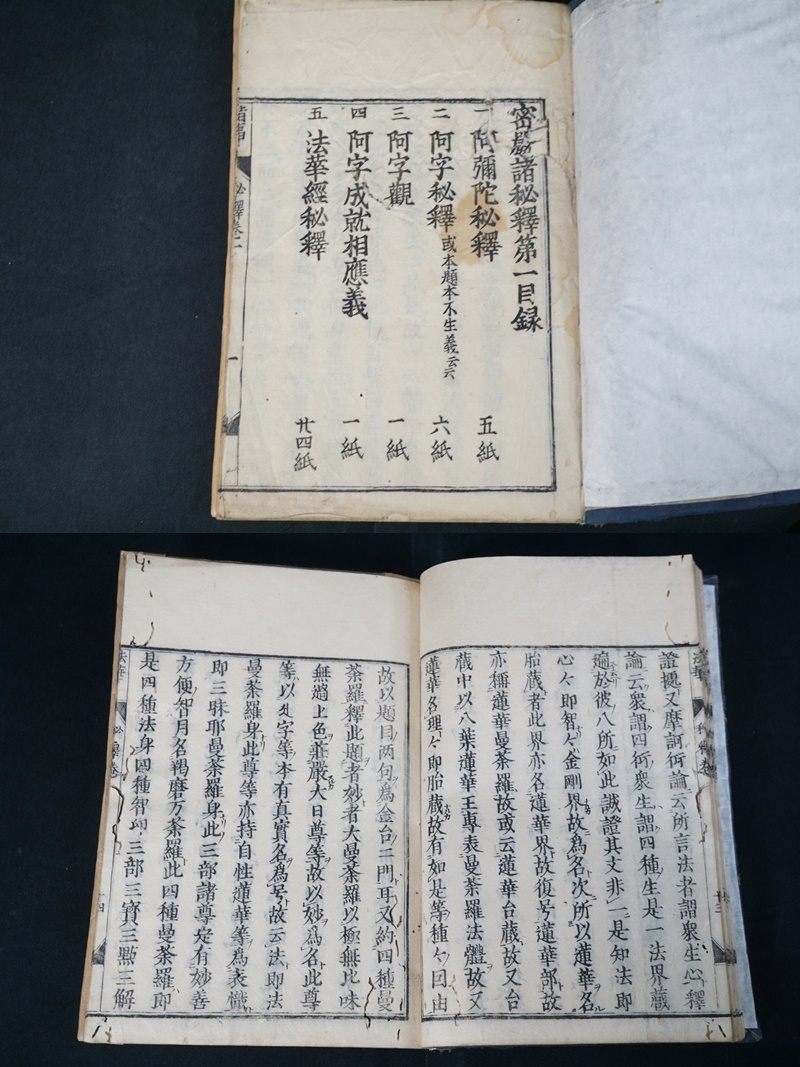 密嚴諸秘釋第一目録
一 阿彌陀秘釋 五紙
二 阿字秘釋 或本題本不生義云云 六紙
三 阿字觀 一紙
四 阿字成就相應義 一紙
五 法華經秘釋 廿四紙
證據又摩訶衍論云所言法者謂衆生心釋
論云衆謂四衍衆生謂四種生是一法界藏
遍於彼八所如此誠證其文非一是知法即
心心即智智金剛界故爲名次所以蓮華名
胎藏者此界亦名蓮華界故復号蓮華部故
亦稱蓮華曼荼羅故或云蓮華台藏故又台
藏中以八葉蓮華王專表曼荼羅法體故又
蓮華名理理即胎藏故有如是等種種因由
故以題目两句爲金台二門耳又約四種曼
荼羅釋此題者妙者大曼荼羅以極無比味
無過上色莊嚴大日尊等故以妙爲名此尊
等以𑖀字等本有真實名爲号故云法即法
曼荼羅身此尊等亦持自性蓮華等爲表幟
即三昧耶曼荼羅身此三部諸尊定有妙善
方便智月名羯磨万荼羅此四種曼荼羅即
是四種法身四種智印三部三寶三點三解